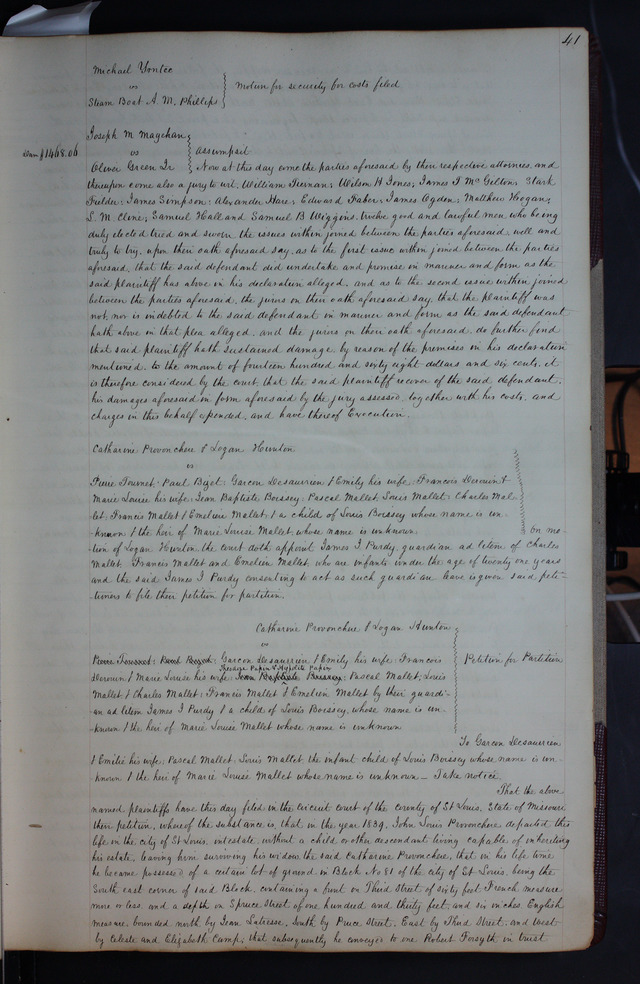 41
Michael Yontee
vs
Steam Boat A. M. Phillips
Motion for security for costs filed
Joseph M Mayehan
Dam $1468.06
vs
Assumpsit
Oliver Green Jr
Now at this day come the parties aforesaid by their respective attornies, and
thereupon come also a jury to wit, William Tiernan; Wilson H Jones; James T McGilton; Stark
Fielder; James Simpson; Alexander Hare; Edward Faher; James Ogden; Matthew Hogan;
S. M. Cline; Samuel Hall and Samuel B Wiggins, twelve good and lawful men who being
duly elected tried and sworn the issues within joined between the parties aforesaid well and
truly to try, upon their oath aforesaid say, as to the first issue within joined between the parties
aforesaid, that the said defendant did undertake and promise in manner and form as the
said plaintiff has above in his declaration alleged, and as to the second issue within joined
between the parties aforesaid, the jurors on their oath aforesaid say, that the plaintiff was
not, nor is indebted to the said defendant in manner and form as the said defendant
hath above in that plea alleged, and the jurors on their oath aforesaid, do further find
that said plaintiff hath sustained damage, by reason of the premises in his declaration
mentioned, to the amount of fourteen hundred and sixty eight dollars and six cents, it
is therefore considered by the court, that the said plaintiff recover of the said defendant,
his damages aforesaid in form aforesaid by the jury assessed, together with his costs, and
charges in this behalf expended, and have thereof Execution.
Catharine Provonchere & Logan Hunton
vs
Pierre Tournot; Paul Bizet; Garcon Desaurrien & Emily his wife; Francois Derouin &
Marie Louise his wife; Jean Baptiste Boissey; Pascal Mallet, Louis Mallet; Charles Mal-
let; Francis Mallet & Emelien Mallet, & a child of Louis Boissey whose name is un-
known & the heir of Marie Louise Mallet, whose name is unknown
On mo-
tion of Logan Hunton, the court doth appoint James T Purdy, guardian ad litem of Charles
Mallet, Francis Mallet and Emelien Mallet, who are infants under the age of twenty one years
and the said James T Purdy consenting to act as such guardian leave is given said peti-
tioners to file their petition for partition.
Catharine Provonchere & Logan Hunton
vs
Pierre Tournot; Paul Bizet; Garcon Desaurrien & Emily his wife; Francois
Petition for Partition
Derouin & Marie Louise his wife; Jean Baptiste Boissey; Pascal Mallet; Louis
Mallet, & Charles Mallet; Francis Mallet & Emelien Mallet by their guardi-
an ad litem James T Purdy & a child of Louis Boissey, whose name is un-
known & the heir of Marie Louise Mallet whose name is unknown
To Garcon Desaurrien
& Emilie his wife; Pascal Mallet, Louis Mallet, the infant child of Louis Boissey whose name is un-
known & the heir of Marie Louise Mallet whose name is unknown — Take notice
That the above
named plaintiffs have this day filed in the circuit court of the county of St Louis, State of Missouri
their petition, whereof the substance is, that in the year 1839, John Louis Provonchere departed this
life in the city of St Louis, intestate, without a child or other descendant living capable of inheriting
his estate, leaving him surviving his widow the said Catharine Provonchere, that in his life time
he became possessed of a certain lot of ground in Block No 81 of the city of St Louis, being the
South east corner of said Block, containing a front on Third Street of sixty feet French measure
more or less and a depth on Spruce street of one hundred and thirty feet and six inches English
measure, bounded north by Jean Latresse, South by Pruce Street; East by Third Street, and west
by Celeste and Elizabeth Camp; that subsequently he conveyed to one Robert Forsyth in trust